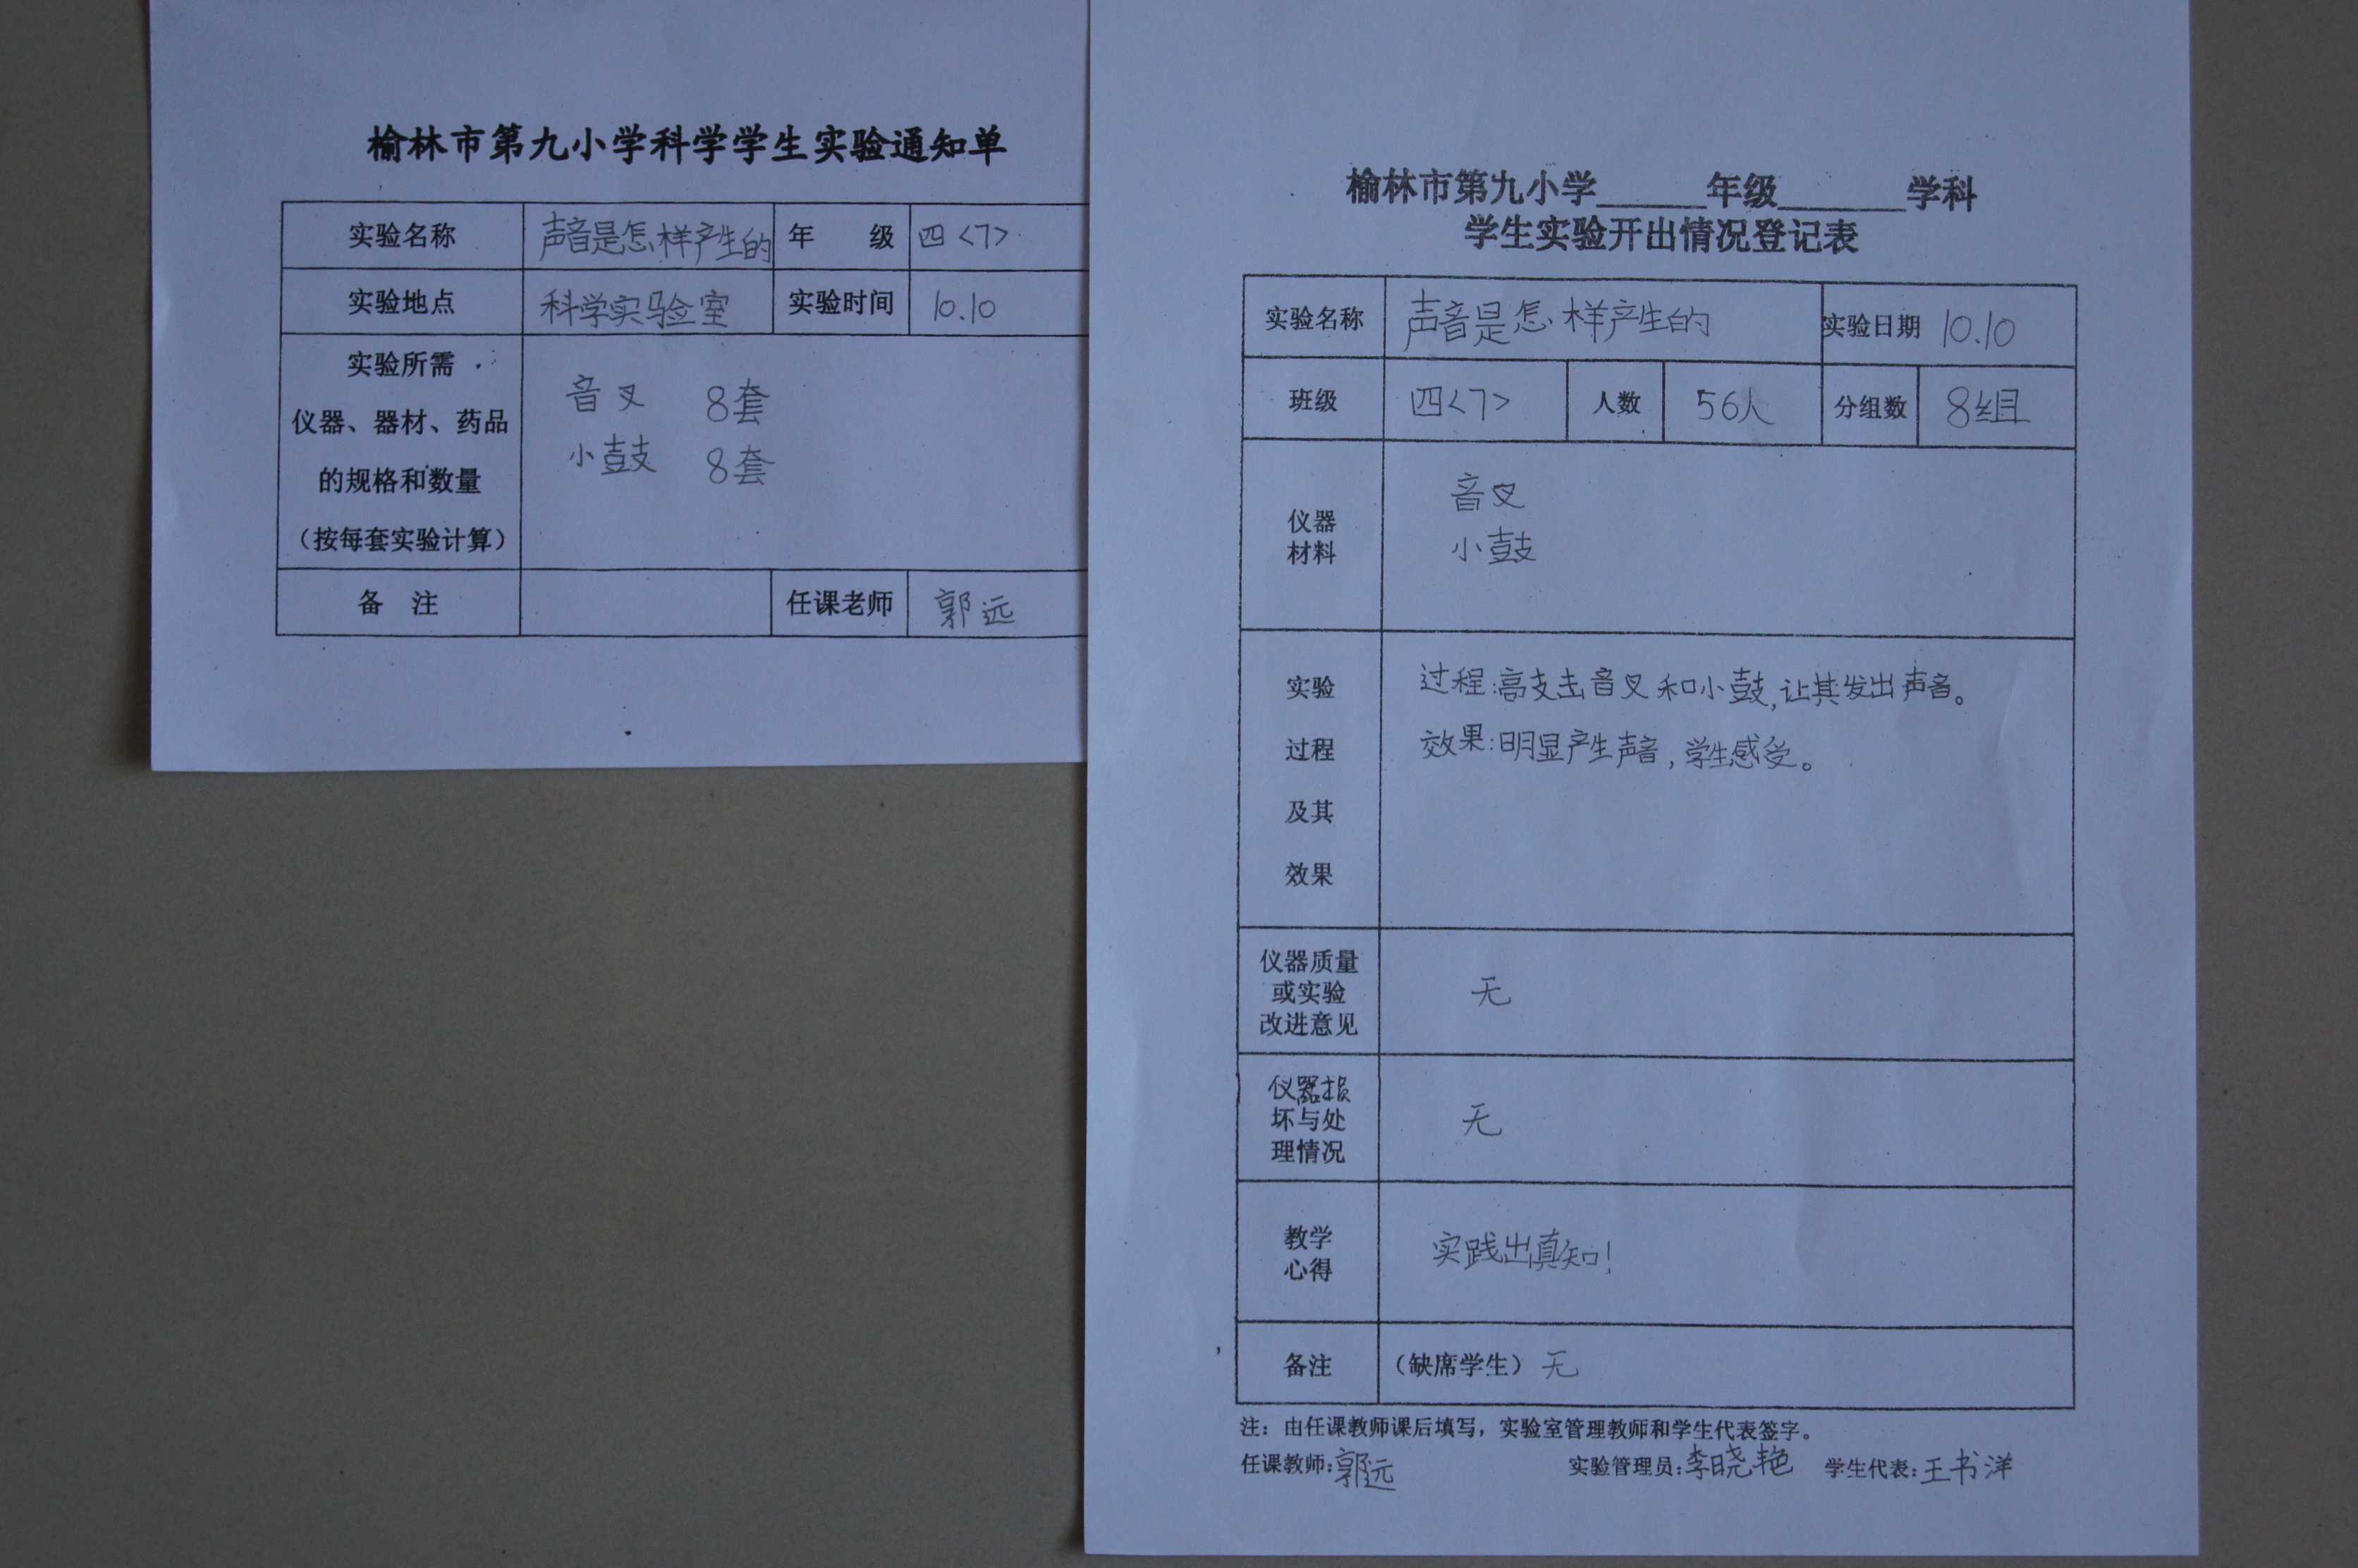 榆林市第九小学科学学生实验通知单
实验名称 声音是怎样产生的 年 级 四<7>
实验地点 科学实验室 实验时间 10.10
实验所需
仪器、器材、药品
的规格和数量
（按每套实验计算）
音叉 8套
小鼓 8套
备 注 任课老师 郭远
榆林市第九小学______年级_______学科
学生实验开出情况登记表
实验名称 声音是怎样产生的 实验日期 10.10
班级 四<7> 人数 56人 分组数 8组
仪器
材料
音叉
小鼓
实验
过程
及其
效果
过程:高支击音叉和小鼓,让其发出声音。
效果:明显产生声音,学生感受。
仪器质量
或实验
改进意见
无
仪器损
坏与处
理情况
无
教学
心得
实践出真知!
备注 （缺席学生）无
注：由任课教师课后填写，实验室管理教师和学生代表签字。
任课教师:郭远 实验管理员:李晓艳 学生代表:王书洋